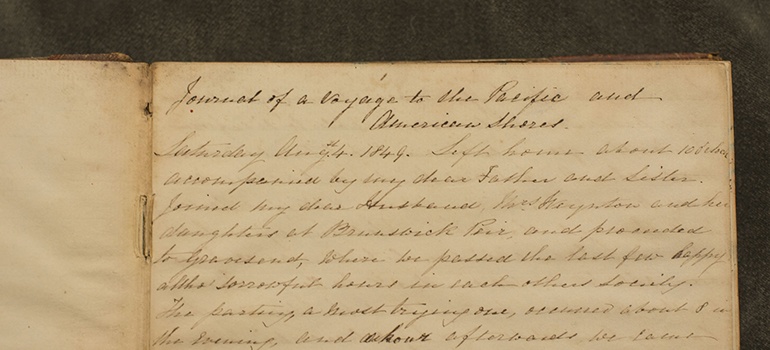 Journal of a Voyage to the Pacific and
American Shores.
Saturday Augt 4. 1849. Left home about 10 o'clock
accompanied by my dear Father and Sister.
Joined my dear Husband, Mrs and her
daughters at Brunswick Peir, and proceeded
to Gravesend, Where we passed the last few happy
altho' sorrowful hours in each others Society.
The parting, a most trying one, occurred about 8 in
the Evening, and afterwards we came